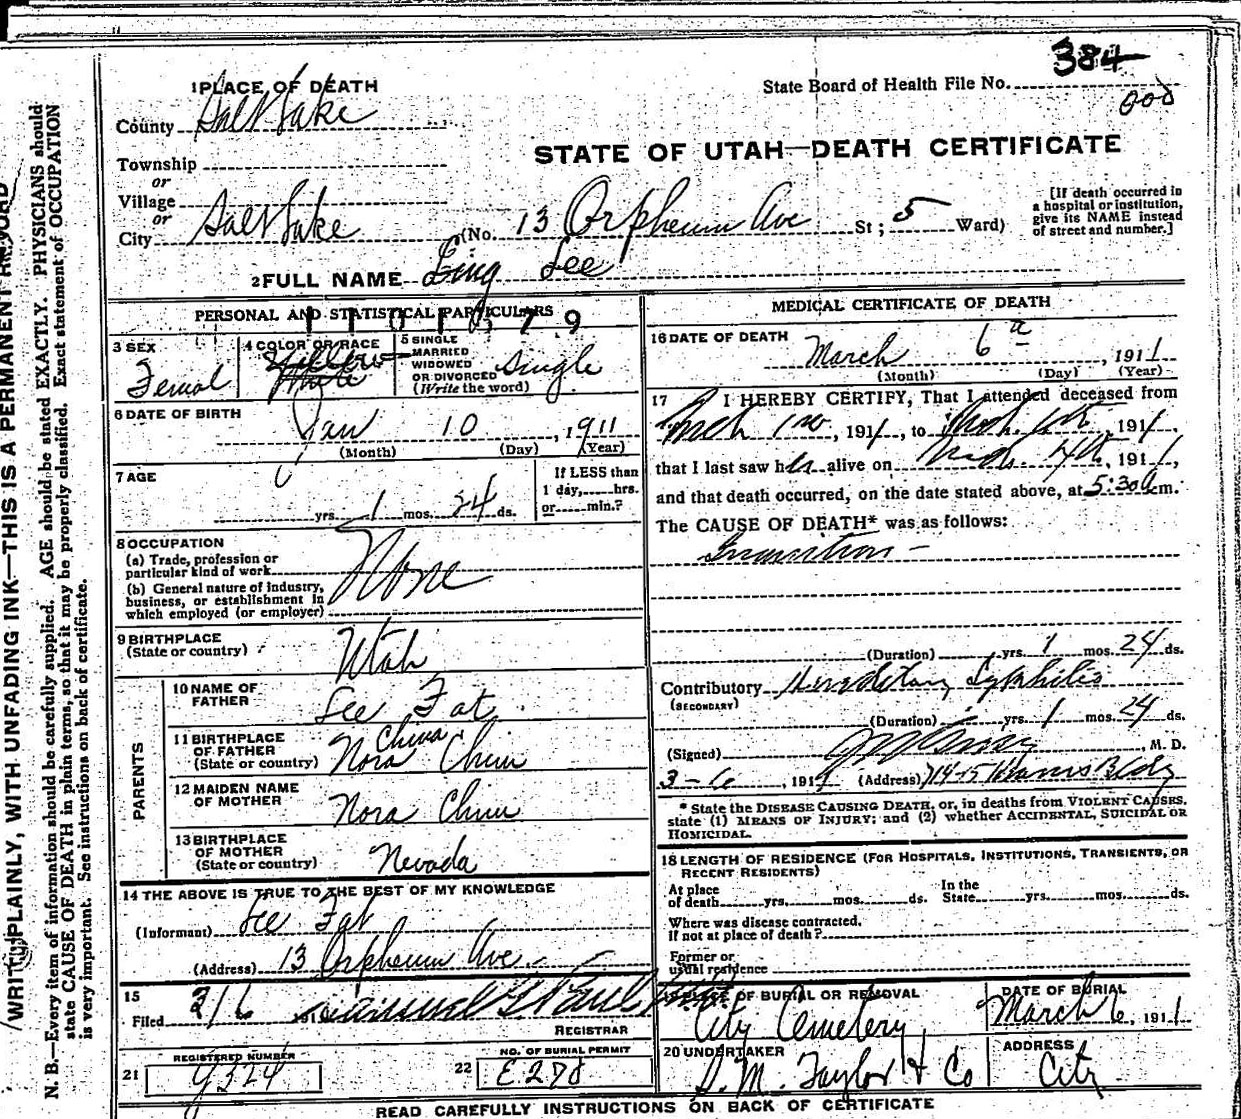 384
State Board of Health File No.
000
1 PLACE OF DEATH
County Salt Lake
Township
or
Village
or
City Salt Lake (No. 13 Orpheum Ave St; 5 Ward)
STATE OF UTAH—DEATH CERTIFICATE
[If death occurred in
a hospital or institution,
give its NAME instead
of street and number.]
2 FULL NAME Ling Lee
PERSONAL AND STATISTICAL PARTICULARS
3 SEX
Femal
4 COLOR OR RACE
Yellow
White
5 SINGLE
MARRIED
WIDOWED
OR DIVORCED
(Write the word)
Single
6 DATE OF BIRTH
Jan 10, 1911
(Month) (Day) (Year)
7 AGE
yrs. 1 mos. 24 ds.
If LESS than
1 day,......hrs.
or......min.?
8 OCCUPATION
(a) Trade, profession or
particular kind of work
(b) General nature of industry,
business, or establishment in
which employed (or employer)
None
9 BIRTHPLACE
(State or country)
Utah
PARENTS
10 NAME OF
FATHER
Lee Fat
11 BIRTHPLACE
OF FATHER
(State or country)
China
Nora Chun
12 MAIDEN NAME
OF MOTHER
Nora Chun
13 BIRTHPLACE
OF MOTHER
(State or country)
Nevada
14 THE ABOVE IS TRUE TO THE BEST OF MY KNOWLEDGE
(Informant) Lee Fat
(Address) 13 Orpheum Ave.
15
Filed 3/6 191
REGISTRAR
REGISTERED NUMBER
21
NO. OF BURIAL PERMIT
22 E278
MEDICAL CERTIFICATE OF DEATH
16 DATE OF DEATH
March 6 a, 1911
(Month) (Day) (Year)
17 I HEREBY CERTIFY, That I attended deceased from
Mch 1, 1911, to Mch, 1911,
that I last saw her alive on Mch 4th, 1911,
and that death occurred, on the date stated above, at 5:30 a m.
The CAUSE OF DEATH* was as follows:
Inanition
(Duration) yrs. 1 mos. 24 ds.
Contributory Hereditary Syphilis
(SECONDARY)
(Duration) yrs. 1 mos. 24 ds.
(Signed) , M. D.
3-6, 1911 (Address) 714-15 Kearns Bldg
* State the DISEASE CAUSING DEATH, or, in deaths from VIOLENT CAUSES,
state (1) MEANS OF INJURY; and (2) whether ACCIDENTAL, SUICIDAL OR
HOMICIDAL.
18 LENGTH OF RESIDENCE (FOR HOSPITALS, INSTITUTIONS, TRANSIENTS, OR
RECENT RESIDENTS)
At place
of death yrs. mos. ds.
In the
State yrs. mos. ds.
Where was disease contracted,
if not at place of death?
Former or
usual residence
19 PLACE OF BURIAL OR REMOVAL
City Cemetery
DATE OF BURIAL
March 6, 1911
20 UNDERTAKER
S. M. Taylor & Co
ADDRESS
City
READ CAREFULLY INSTRUCTIONS ON BACK OF CERTIFICATE
WRITE PLAINLY, WITH UNFADING INK—THIS IS A PERMANENT RECORD
N. B.—Every item of information should be carefully supplied. AGE should be stated EXACTLY. PHYSICIANS should
state CAUSE OF DEATH in plain terms, so that it may be properly classified. Exact statement of OCCUPATION
is very important. See instructions on back of certificate.